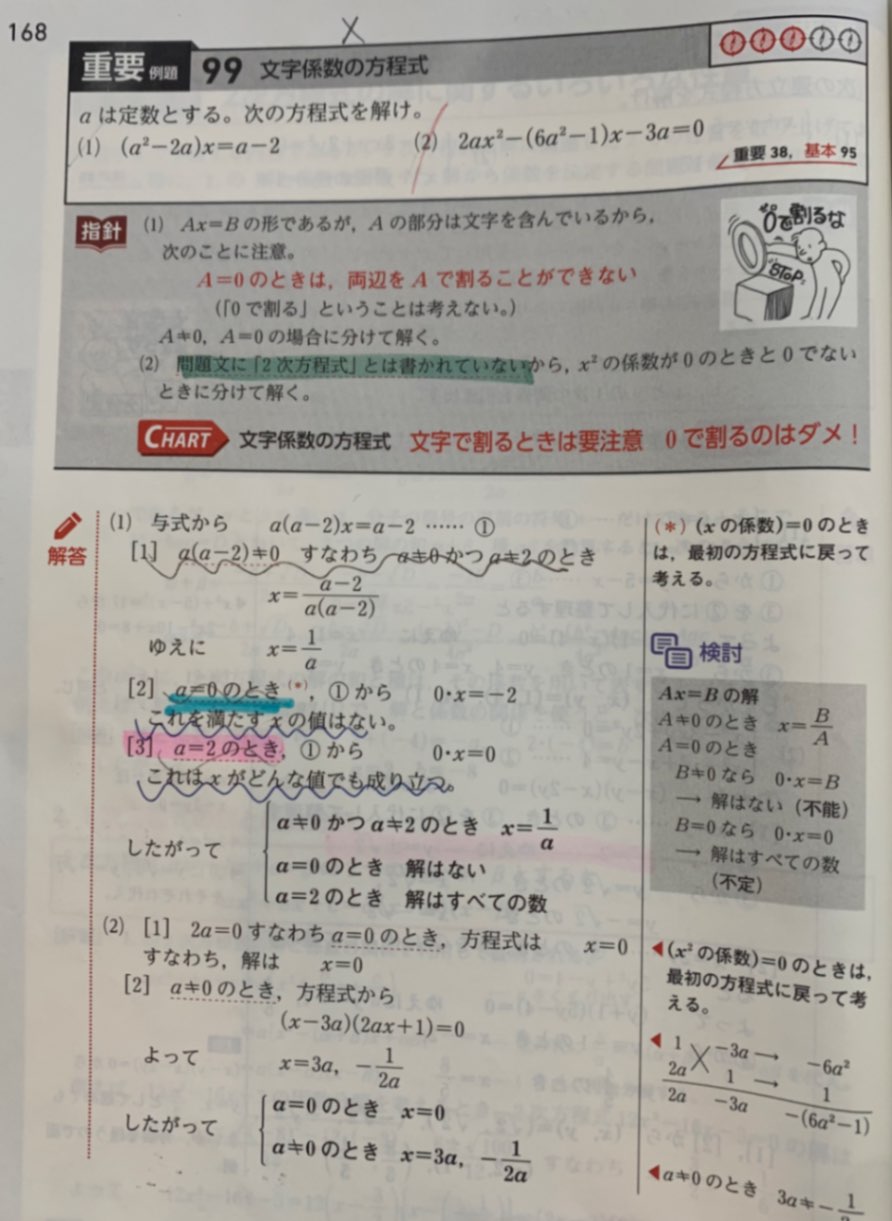 168
重要 例題 99 文字係数の方程式
aは定数とする。次の方程式を解け。
(1) (a²−2a)x=a−2 (2) 2ax²−(6a²−1)x−3a=0
重要 38, 基本 95
指針
(1) Ax=B の形であるが，A の部分は文字を含んでいるから，
次のことに注意。
A=0 のときは，両辺を A で割ることができない
(「0 で割る」ということは考えない。)
A≠0，A=0 の場合に分けて解く。
(2) 問題文に「2次方程式」とは書かれていないから，x² の係数が 0 のときと 0 でない
ときに分けて解く。
0で割るな
STOP
CHART 文字係数の方程式 文字で割るときは要注意 0 で割るのはダメ！
解答
(1) 与式から a(a−2)x=a−2 …… ①
[1] a(a−2)≠0 すなわち a≠0 かつ a≠2 のとき
x=\frac{a−2}{a(a−2)}
ゆえに x=\frac{1}{a}
[2] a=0 のとき(*)，① から 0·x=−2
これを満たす x の値はない。
[3] a=2 のとき，① から 0·x=0
これは x がどんな値でも成り立つ。
したがって
a≠0 かつ a≠2 のとき x=\frac{1}{a}
a=0 のとき 解はない
a=2 のとき 解はすべての数
(2) [1] 2a=0 すなわち a=0 のとき，方程式は x=0
すなわち，解は x=0
[2] a≠0 のとき，方程式から
(x−3a)(2ax+1)=0
よって x=3a, −\frac{1}{2a}
したがって
a=0 のとき x=0
a≠0 のとき x=3a, −\frac{1}{2a}
(*) (x の係数)=0 のとき
は，最初の方程式に戻って
考える。
検討
Ax=B の解
A≠0 のとき x=\frac{B}{A}
A=0 のとき
B≠0 なら 0·x=B
→ 解はない (不能)
B=0 なら 0·x=0
→ 解はすべての数
(不定)
◀(x² の係数)=0 のときは，
最初の方程式に戻って考
える。
◀ 1 −3a → −6a²
2a 1 → 1
2a −3a −(6a²−1)
◀a≠0 のとき 3a≠−